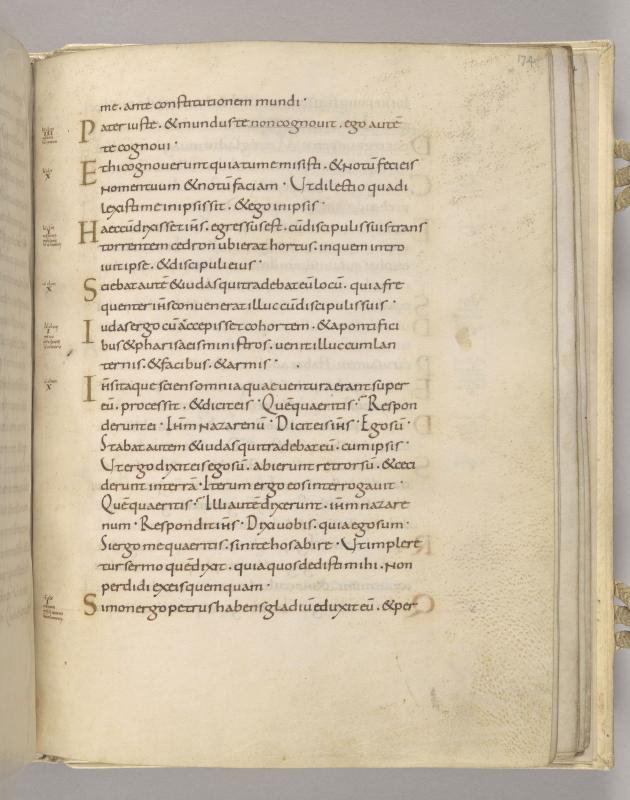 174
me. ante constitutionem mundi·
Pater iuste. & mundus te non cognouit. ego autē
te cognoui·
Et hi cognouerunt quia tu me misisti. & notū feci eis
nomen tuum & notū faciam· Ut dilectio qua di
lexisti me in ipsis sit. & ego in ipsis·
Haec cū dixisset ih̅s. egressus est. cū discipulis suis trans
torrentem cedron ubi erat hortus. in quem intro
iuit ipse. & discipuli eius·
Sciebat autē & iudas qui tradebat eū locū. quia fre
quenter ih̅s conuenerat illuc cū discipulis suis·
Iudas ergo cū accepisset cohortem. & a pontifici
bus & pharisaeis ministros. uenit illuc cum lan
ternis. & facibus. & armis·
Ih̅s itaque sciens omnia quae uentura erant super
eū. processit. & dicit eis· Quē quaeritis· Respon
derunt ei· Ih̅m nazarenū· Dicit eis ih̅s· Ego sū·
Stabat autem & iudas qui tradebat eū. cum ipsis·
Ut ergo dixit eis ego sū. abierunt retrorsū. & ceci
derunt in terrā· Iterum ergo eos interrogauit·
Quē quaeritis· Illi autē dixerunt. ih̅m nazare
num· Respondit ih̅s· Dixi uobis. quia ego sum·
Si ergo me quaeritis. sinite hos abire· Ut implere
tur sermo quē dixit. quia quos dedisti mihi. non
perdidi ex eis quemquam·
Simon ergo petrus habens gladiū eduxit eū. & per